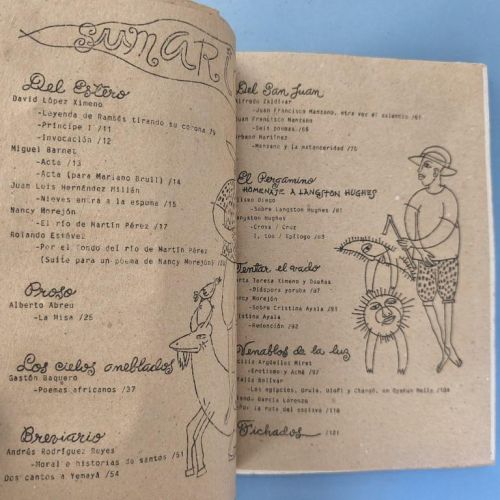 SUMARI
Del Estero
David López Ximeno
-Leyenda de Bambés tirando su corona /9
-Príncipe I /11
-Invocación /12
Miguel Barnet
-Acto /13
-Acta (para Mariano Brull) /14
Juan Luis Hernández Milián
-Nieves entra a la espuma /15
Nancy Morejón
-El río de Martín Pérez /17
Rolando Estévez
-Por el fondo del río de Martín Pérez
(Suite para un poema de Nancy Morejón)
Prosa
Alberto Abreu
-La Misa /25
Los cielos aneblados
Gastón Baquero
-Poemas africanos /37
Breviario
Andrés Rodríguez Reyes
-Moral e historias de santos /51
Dos cantos a Yemayá /54
Del San Juan
Alfredo Zaldívar
-Juan Francisco Manzano, otra vez el silencio /61
Juan Francisco Manzano
-Seis poemas /66
Urbano Martínez
-Manzano y la matanceridad /75
El Pergamino
HOMENAJE A LANGSTON HUGHES
Eliseo Diego
-Sobre Langston Hughes /81
Langston Hughes
-Cross / Cruz
I, too / Epílogo /83
Tentar el vado
Marta Teresa Ximeno y Dueñas
-Diáspora yoruba /87
Nancy Morejón
-Sobre Cristina Ayala /91
Cristina Ayala
-Redención /92
Venablos de la luz
Cecilio Argüelles Miret
-Erotismo y Aché /97
Natalia Bolívar
-Los egipcios, Orula, Olofi y Changó, en Oyekun Meile /104
García Lorenzo
-Por la ruta del esclavo /118
Fichados /121